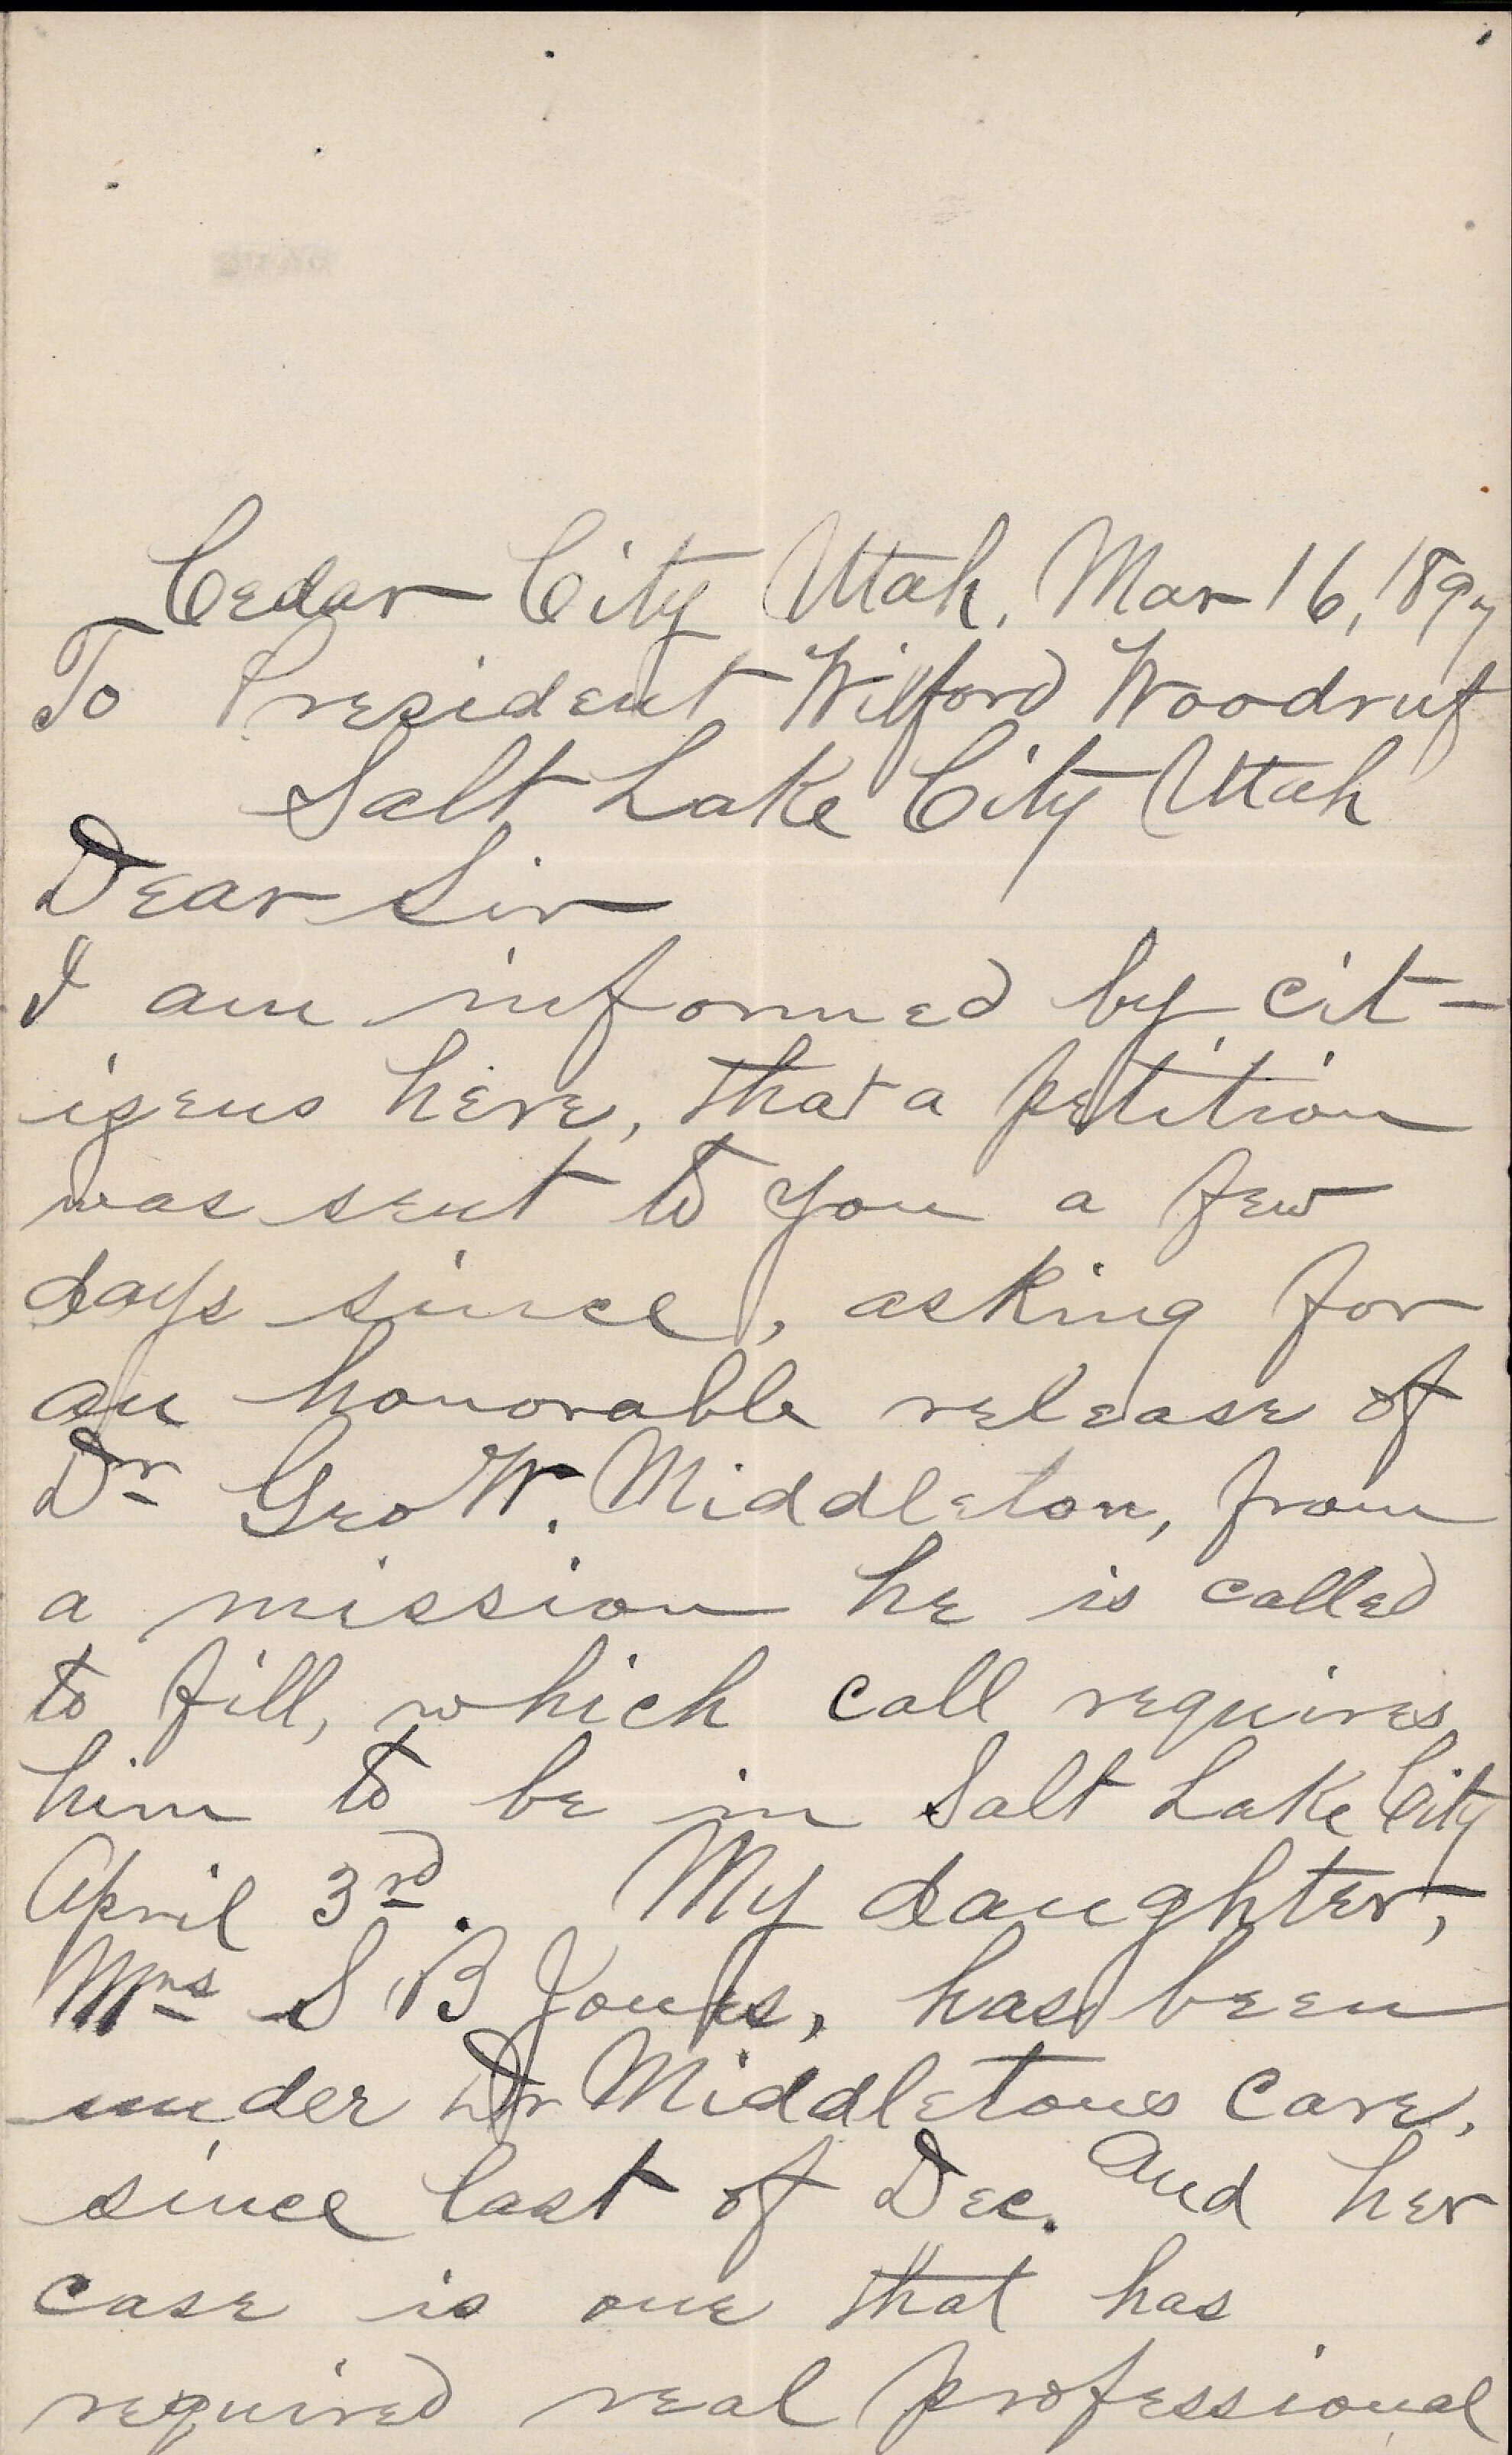 Cedar City Utah. Mar 16, 1897
To President Wilford Woodruf
Salt Lake City Utah
Dear Sir
I am informed by cit-
izens here, that a petition
was sent to you a few
days since, asking for
an honorable release of
Dr Geo W. Middleton, from
a mission he is called
to fill, which call requires
him to be in Salt Lake City
April 3rd. My daughter,
Mrs S B Jones, has been
under Dr Middletons care,
since last of Dec. And her
case is one that has
required real professional